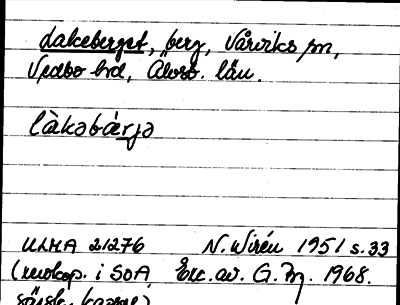 Lakeberget, berg, Vårviks sn,
Vedbo hd, Älvsb. län.
làkəbárjə
ULMA 21276 N. Wirén 1951 s. 33
(renskop. i SOA, Exc. av. G. m. 1968.
särsk. kapsel)